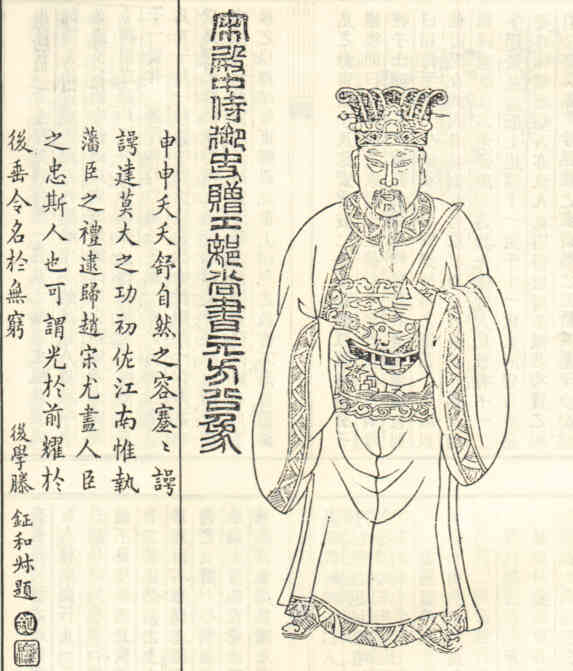 宋殿中侍御史贈工部尚書元方公像
申申夭夭舒自然之容蹇〻諤
諤達莫大之功初佐江南惟執
藩臣之禮逮歸趙宋尤盡人臣
之忠斯人也可謂光於前耀於
後垂令名於無窮
後學滕 鉦和叔題